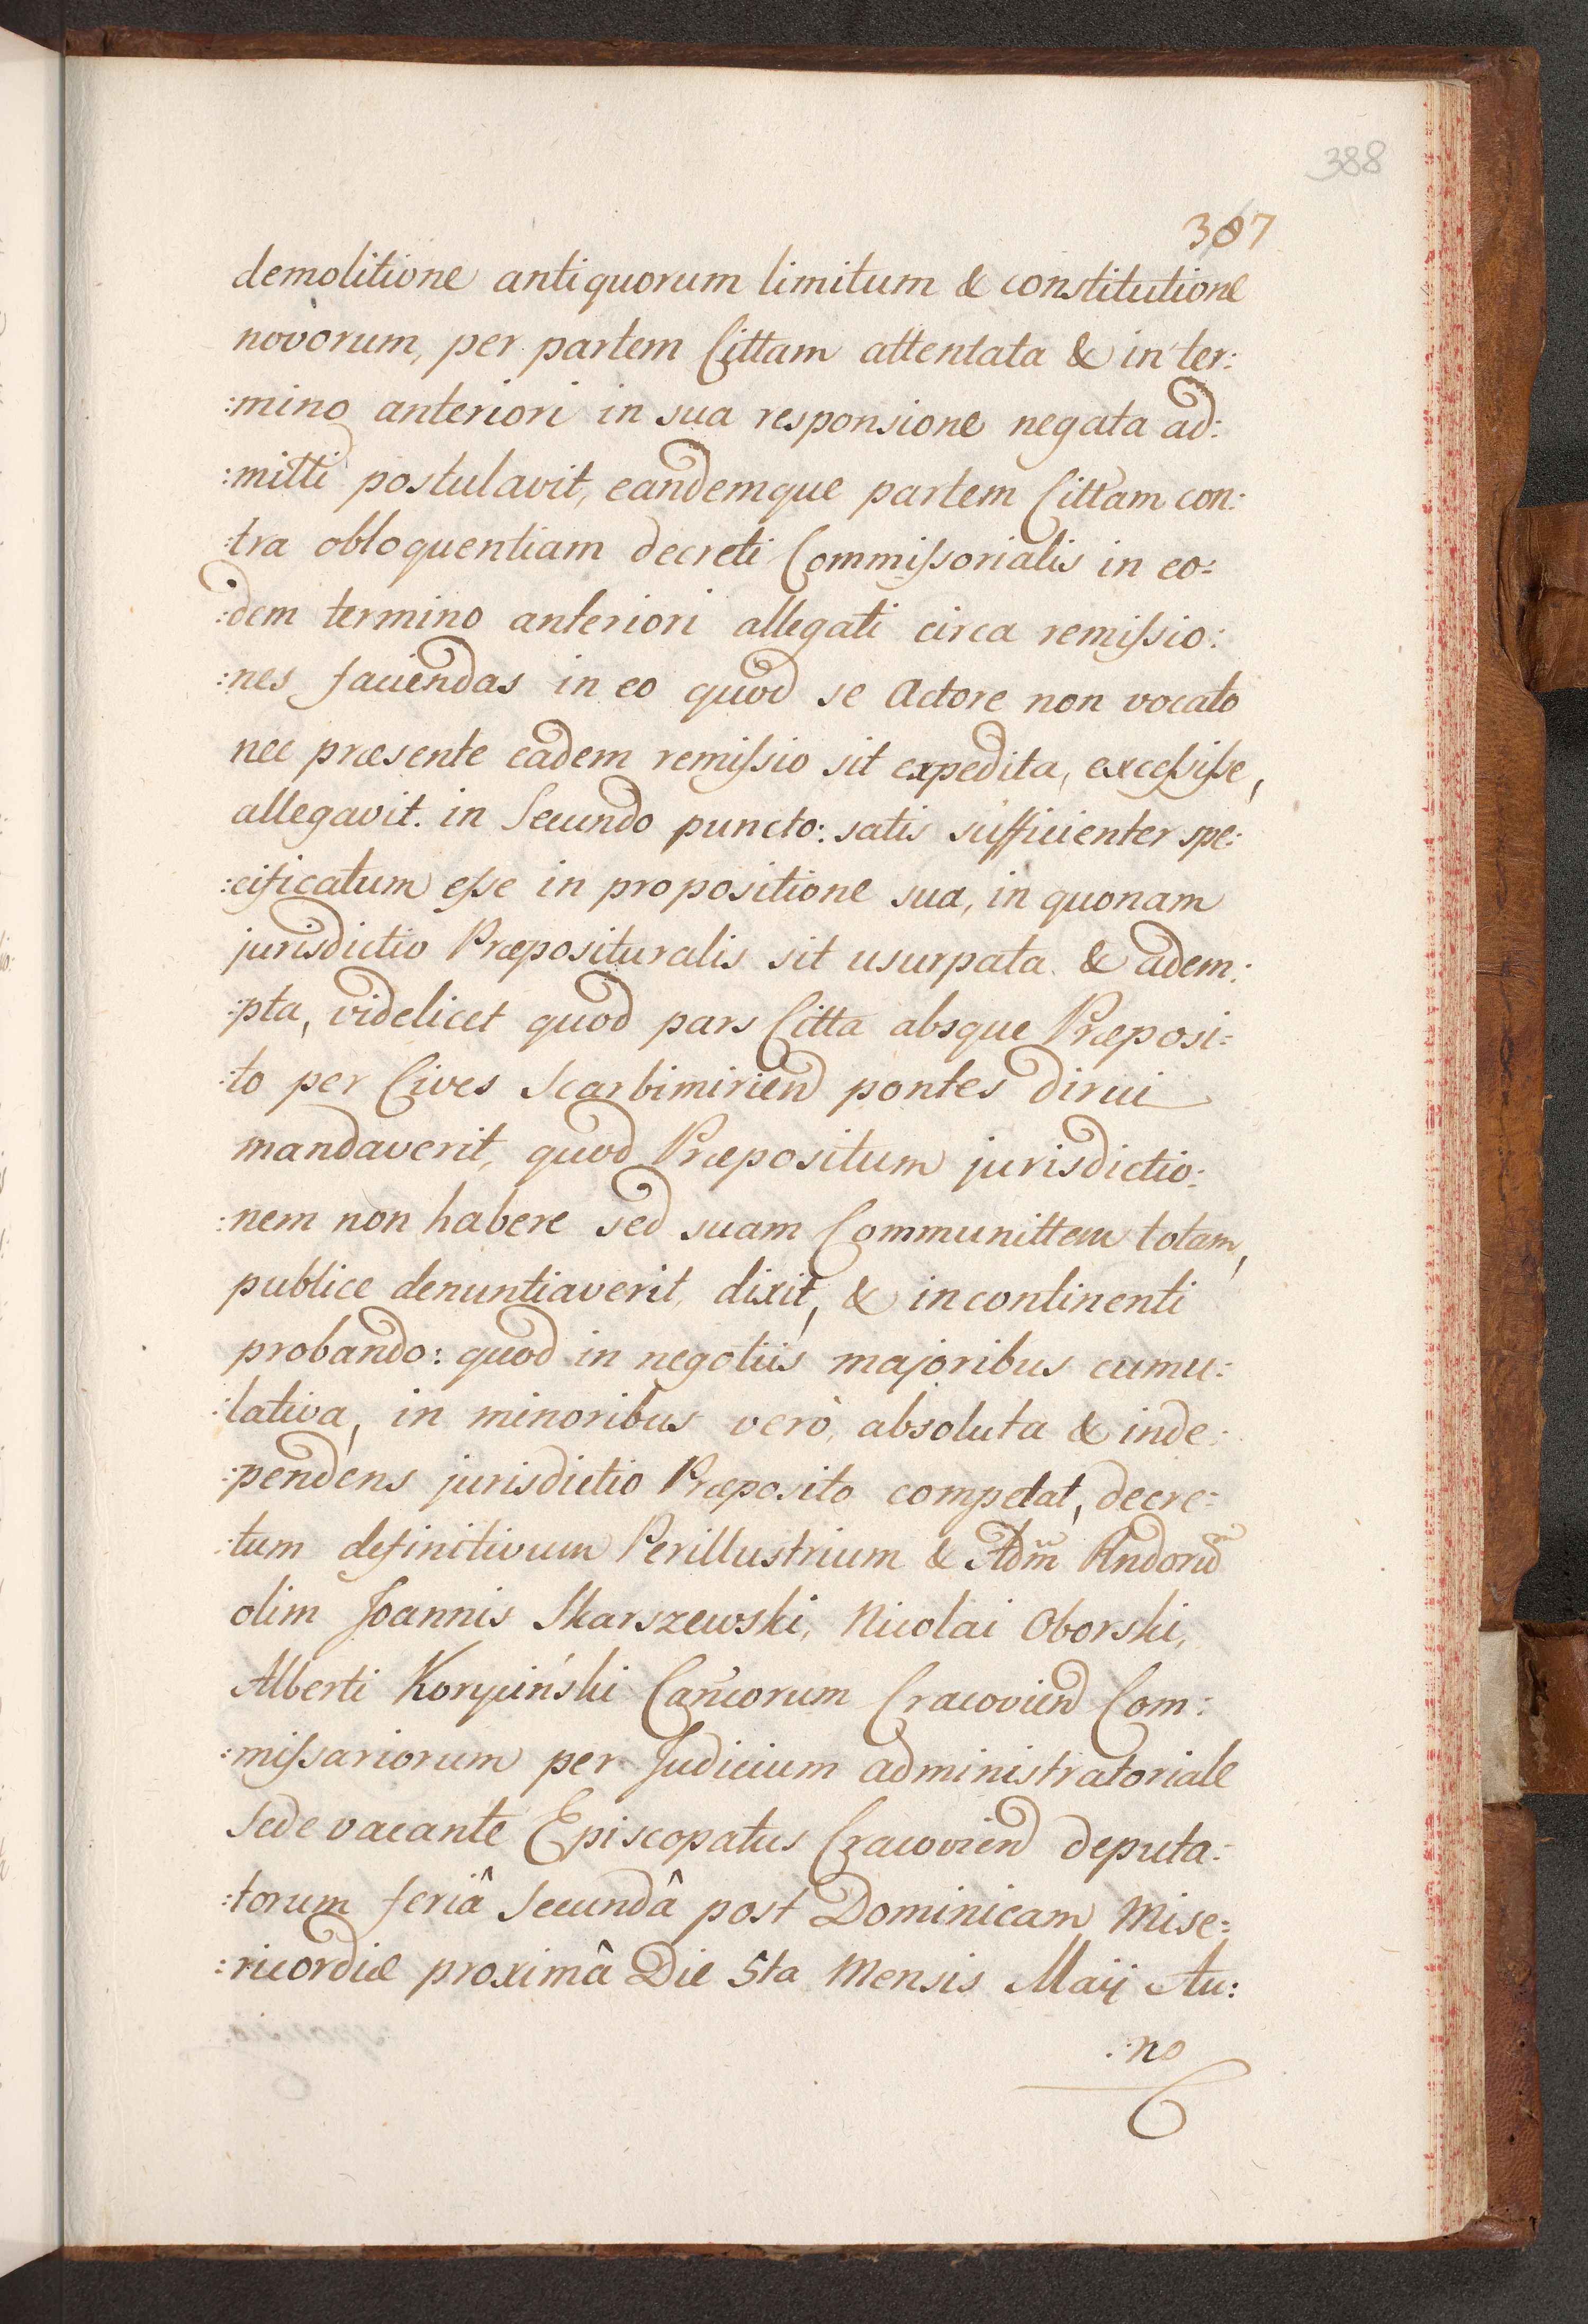 388
387
demolitione antiquorum limitum & constitutione
novorum, per partem Cittam attentata & in ter:
:mino anteriori in sua responsione negata ad:
:mitti postulavit, eandemque partem Cittam con:
:tra obloquentiam decreti Commissorialis in eo:
:dem termino anteriori allegati circa remissio:
:nes faciendas in eo quod se Actore non vocato
nec præsente eadem remissio sit expedita, excessisse,
allegavit. in Secundo puncto: satis sufficienter spe:
:cificatum esse in propositione sua, in quonam
jurisdictio Præposituralis sit usurpata & adem:
:pta, videlicet quod pars Citta absque Præposi:
:to per Cives Scarbimirien pontes dirui
mandaverit, quod Præpositum jurisdictio:
:nem non habere sed suam Communittem totam,
publice denuntiaverit, dixit, & incontinenti
probando: quod in negotiis majoribus cumu:
:lativa, in minoribus verò, absoluta & inde:
:pendens jurisdictio Præposito competat, decre:
:tum definitivum Perillustrium & Adm̃ Rndorũ
olim Joannis Skarszewski, Nicolai Oborski,
Alberti Koryciński Cañcorum Cracovien Com:
:missariorum per Judicium administratoriale
Sede vacante Episcopatus Cracovien deputa:
:torum feriâ Secundâ post Dominicam Mise:
:ricordiæ proximâ Die 5ta Mensis Maij An:
:no